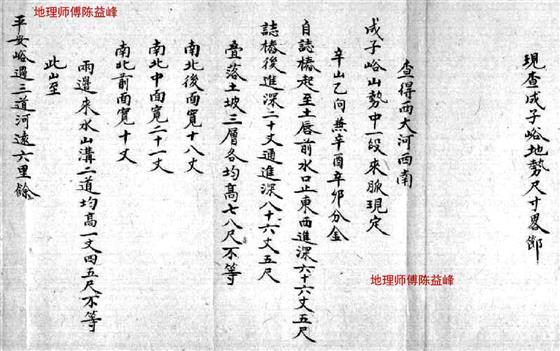 地理师傅陈益峰
現查成子峪地勢尺寸畧節
查得西大河西南
成子峪山勢中一段來脈現定
辛山乙向兼辛酉辛卯分金
自誌樁起至土唇前水口止東西進深六十六丈五尺
誌樁後進深二十丈通進深八十六丈五尺
疊落土坡三層各均高七八尺不等
南北後面寬十八丈
南北中面寬二十一丈
南北前面寬十丈
兩邊來水山溝二道均高一丈四五尺不等
此山至
平安峪過三道河遠六里餘
地理师傅陈益峰